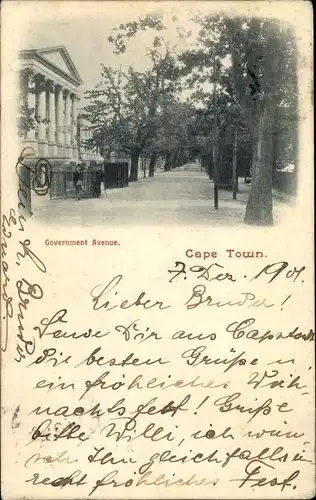 Government Avenue.
Cape Town.
7. Dez. 1901.
Lieber Bruder!
Sende Dir aus Capstadt
die besten Grüße u.
ein fröhliches Weih-
nachtsfest! Grüße
bitte Willi, ich wün-
sche Ihm gleichfalls ein
recht fröhliches Fest.
Dein tr. Bruder
Eduard.